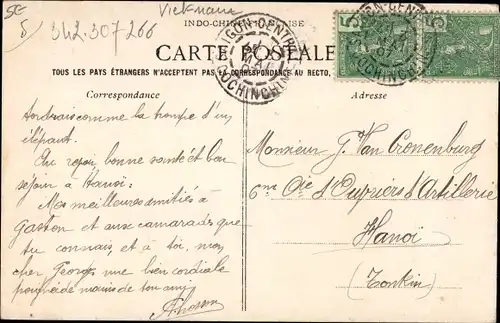 5€
5) 342.307.266
Vietnam
INDO-CHINE FRANÇAISE
SAIGON-CENTRAL
COCHINCHINE
5
5
CARTE POSTALE
TOUS LES PAYS ÉTRANGERS N'ACCEPTENT PAS LA CORRESPONDANCE AU RECTO,
Correspondance
Adresse
comme la trompe d'un
éléphant.
En repos, bonne santé et bon
séjour à Hanoï.
Mes meilleures amitiés à
Gaston et aux camarades que
tu connais, et à toi, mon
cher Georges, une bien cordiale
poignée de mains de ton ami
Monsieur G. Van Cronenburg
6me Cie d'Ouvriers d'Artillerie
Hanoï
(Tonkin)